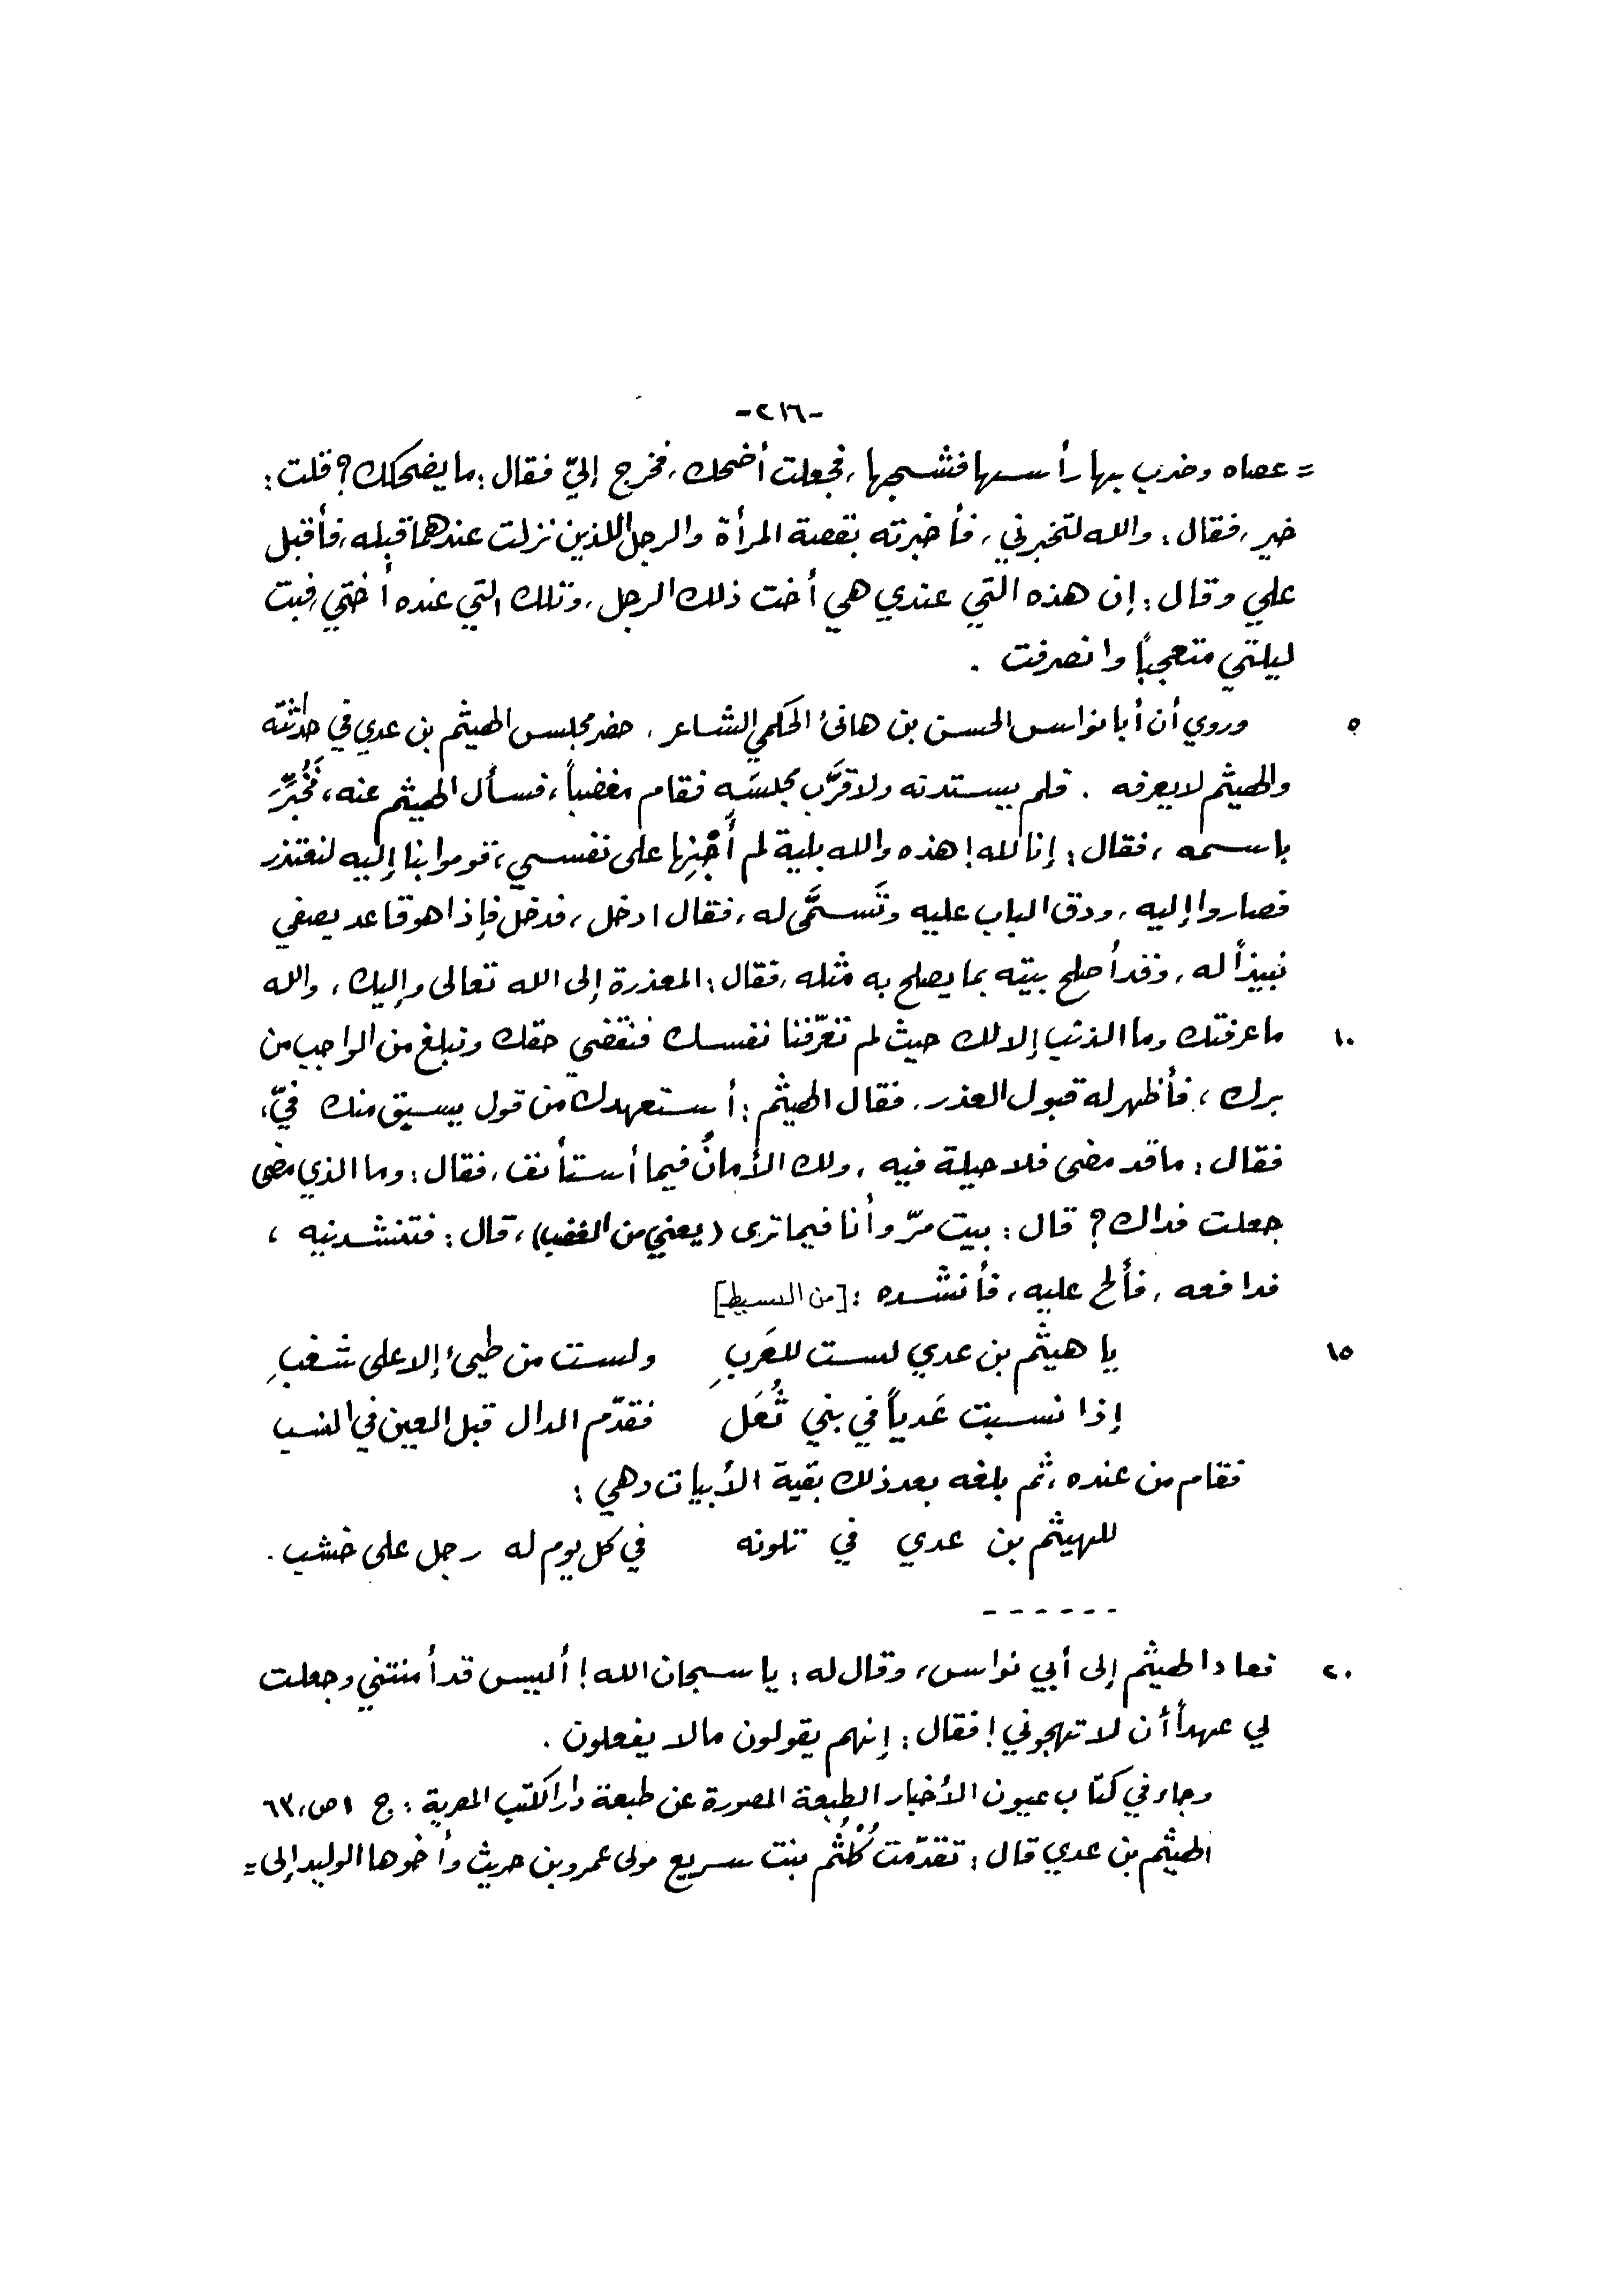 -٢١٦-
= عصاه وضرب بها رأسها فشجها، فجعلت أضحك، فخرج إليّ فقال: ما يضحكك؟ قلت:
خير، فقال: والله لتخبرني، فأخبرته بقصة المرأة والرجل اللذين نزلت عندهما قبله، فأقبل
علي وقال: إن هذه التي عندي هي أخت ذلك الرجل، وتلك التي عنده أختي، فبت
ليلتي متعجباً وانصرفت .
٥ وروي أن أبا نواس الحسن بن هانئ الحَكمي الشاعر، حضر مجلس الهيثم بن عدي في حداثته
والهيثم لا يعرفه . فلم يستدنه ولا قرَّب مجلسَه فقام مغضباً، فسأل الهيثم عنه، فَخُبِّرَ
باسمه، فقال: إنا لله! هذه والله بلية لم أَجْنِها على نفسي، قوموا بنا إليه لنعتذر
فصاروا إليه، ودق الباب عليه وتَسمَّى له، فقال ادخل، فدخل فإذا هو قاعد يصفي
نبيذاً له، وقد أصلح بيته بما يصلح به مثله، فقال: المعذرة إلى الله تعالى وإليك، والله
١٠ ما عرفتك وما الذنب إلا لك حيث لم تعرّفنا نفسك فنقضي حقك ونبلغ من الواجب من
برك، فأظهر له قبول العذر. فقال الهيثم: أستعهدك من قول يسبق منك فيّ،
فقال: ما قد مضى فلا حيلة فيه، ولك الأمانُ فيما أستأنف، فقال: وما الذي مضى
جعلت فداك؟ قال: بيت مرّ وأنا فيما ترى (يعني من الغضب)، قال: فتنشدنيه،
فدافعه، فألح عليه، فأنشده: [من البسيط]
١٥ يا هيثم بن عدي لست للعَربِ ولست من طيئ إلا على شغبِ
إذا نسبت عَدياً في بني ثُعَل فقدّم الدال قبل العين في النسب
فقام من عنده، ثم بلغه بعد ذلك بقية الأبيات وهي:
للهيثم بن عدي في تلونه في كل يوم له رجل على خشب .
------
٢٠ فعاد الهيثم إلى أبي نواس، وقال له: يا سبحان الله! أليس قد أمنتني وجعلت
لي عهداً أن لا تهجوني! فقال: إنهم يقولون ما لا يفعلون .
وجاء في كتاب عيون الأخبار الطبعة المصورة عن طبعة دار الكتب المصرية: ج ١ ص، ٦٣
الهيثم بن عدي قال: تقدّمت كُلْثُم بنت سريع مولى عمرو بن حريث وأخوها الوليد إلى =